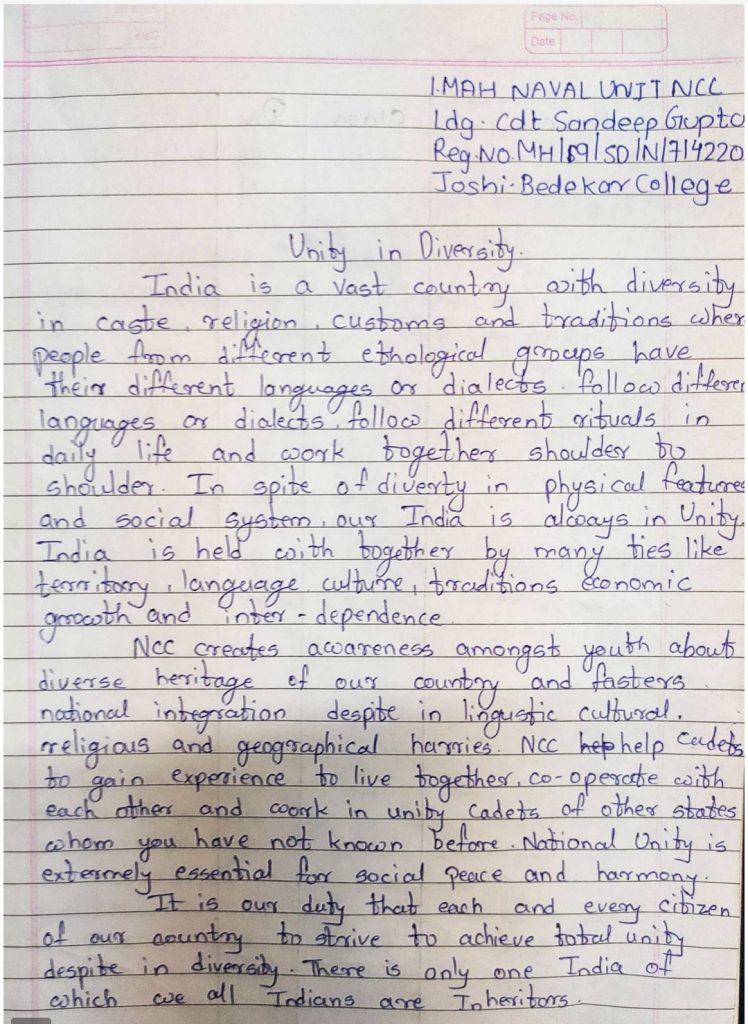 Page No.
Date
1.MAH NAVAL UNIT NCC
Ldg. Cdt Sandeep Gupta
Reg.No.MH/19/SD/N/714220
Joshi-Bedekar College
Unity in Diversity.
India is a vast country with diversity
in caste, religion, customs and traditions wher
people from different ethological groups have
their different languages or dialects. follow differen
languages or dialects, follow different rituals in
daily life and work together shoulder to
shoulder. In spite of diverty in physical features
and social system, our India is always in Unity.
India is held with together by many ties like
territory, language, culture, traditions economic
growth and inter-dependence.
Ncc creates awareness amongst youth about
diverse heritage of our country and fasters
national integration despite in lingustic cultural.
religious and geographical harries. NCC help help Cadets
to gain experience to live together, co-operate with
each other and work in unity cadets of other states
whom you have not known before. National Unity is
extermely essential for social peace and harmony.
It is our duty that each and every citizen
of our country to strive to achieve total unity
despite in diversity. There is only one India of
which we all Indians are Inheritors.